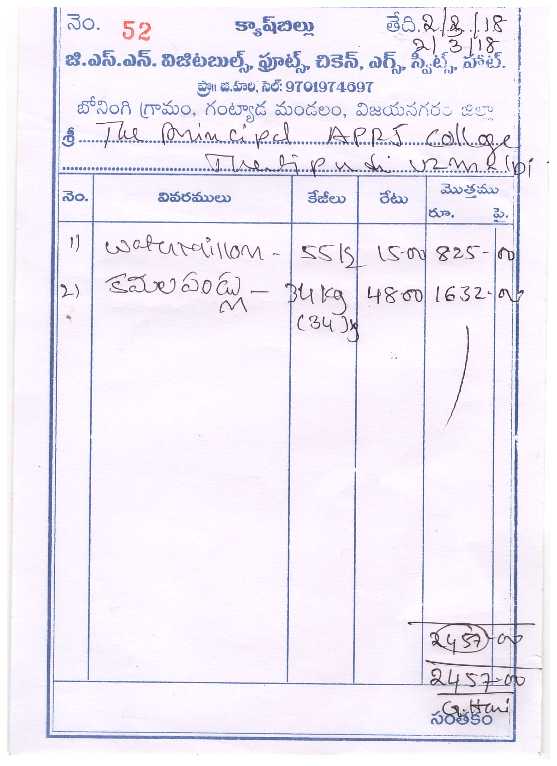 నెం. 52 క్యాష్‌బిల్లు తేది. 2/2/18
2/3/18
జి.ఎస్.ఎన్. విజిటబుల్స్, ఫ్రూట్స్, చికెన్, ఎగ్స్, స్వీట్స్, హాట్.
ప్రొ॥ జి.హరి, సెల్: 9701974697
బోనింగి గ్రామం, గంట్యాడ మండలం, విజయనగరం జిల్లా
శ్రీ The Principal APRJ College
Thatipudi
నెం. వివరములు కేజీలు రేటు మొత్తము
రూ. పై.
1) watermillon - 55kg 15-00 825-00
2) కమలపండ్లు - 34kg 48-00 1632-00
(34)kg
2457-00
2457-00
G. Hari
సంతకం